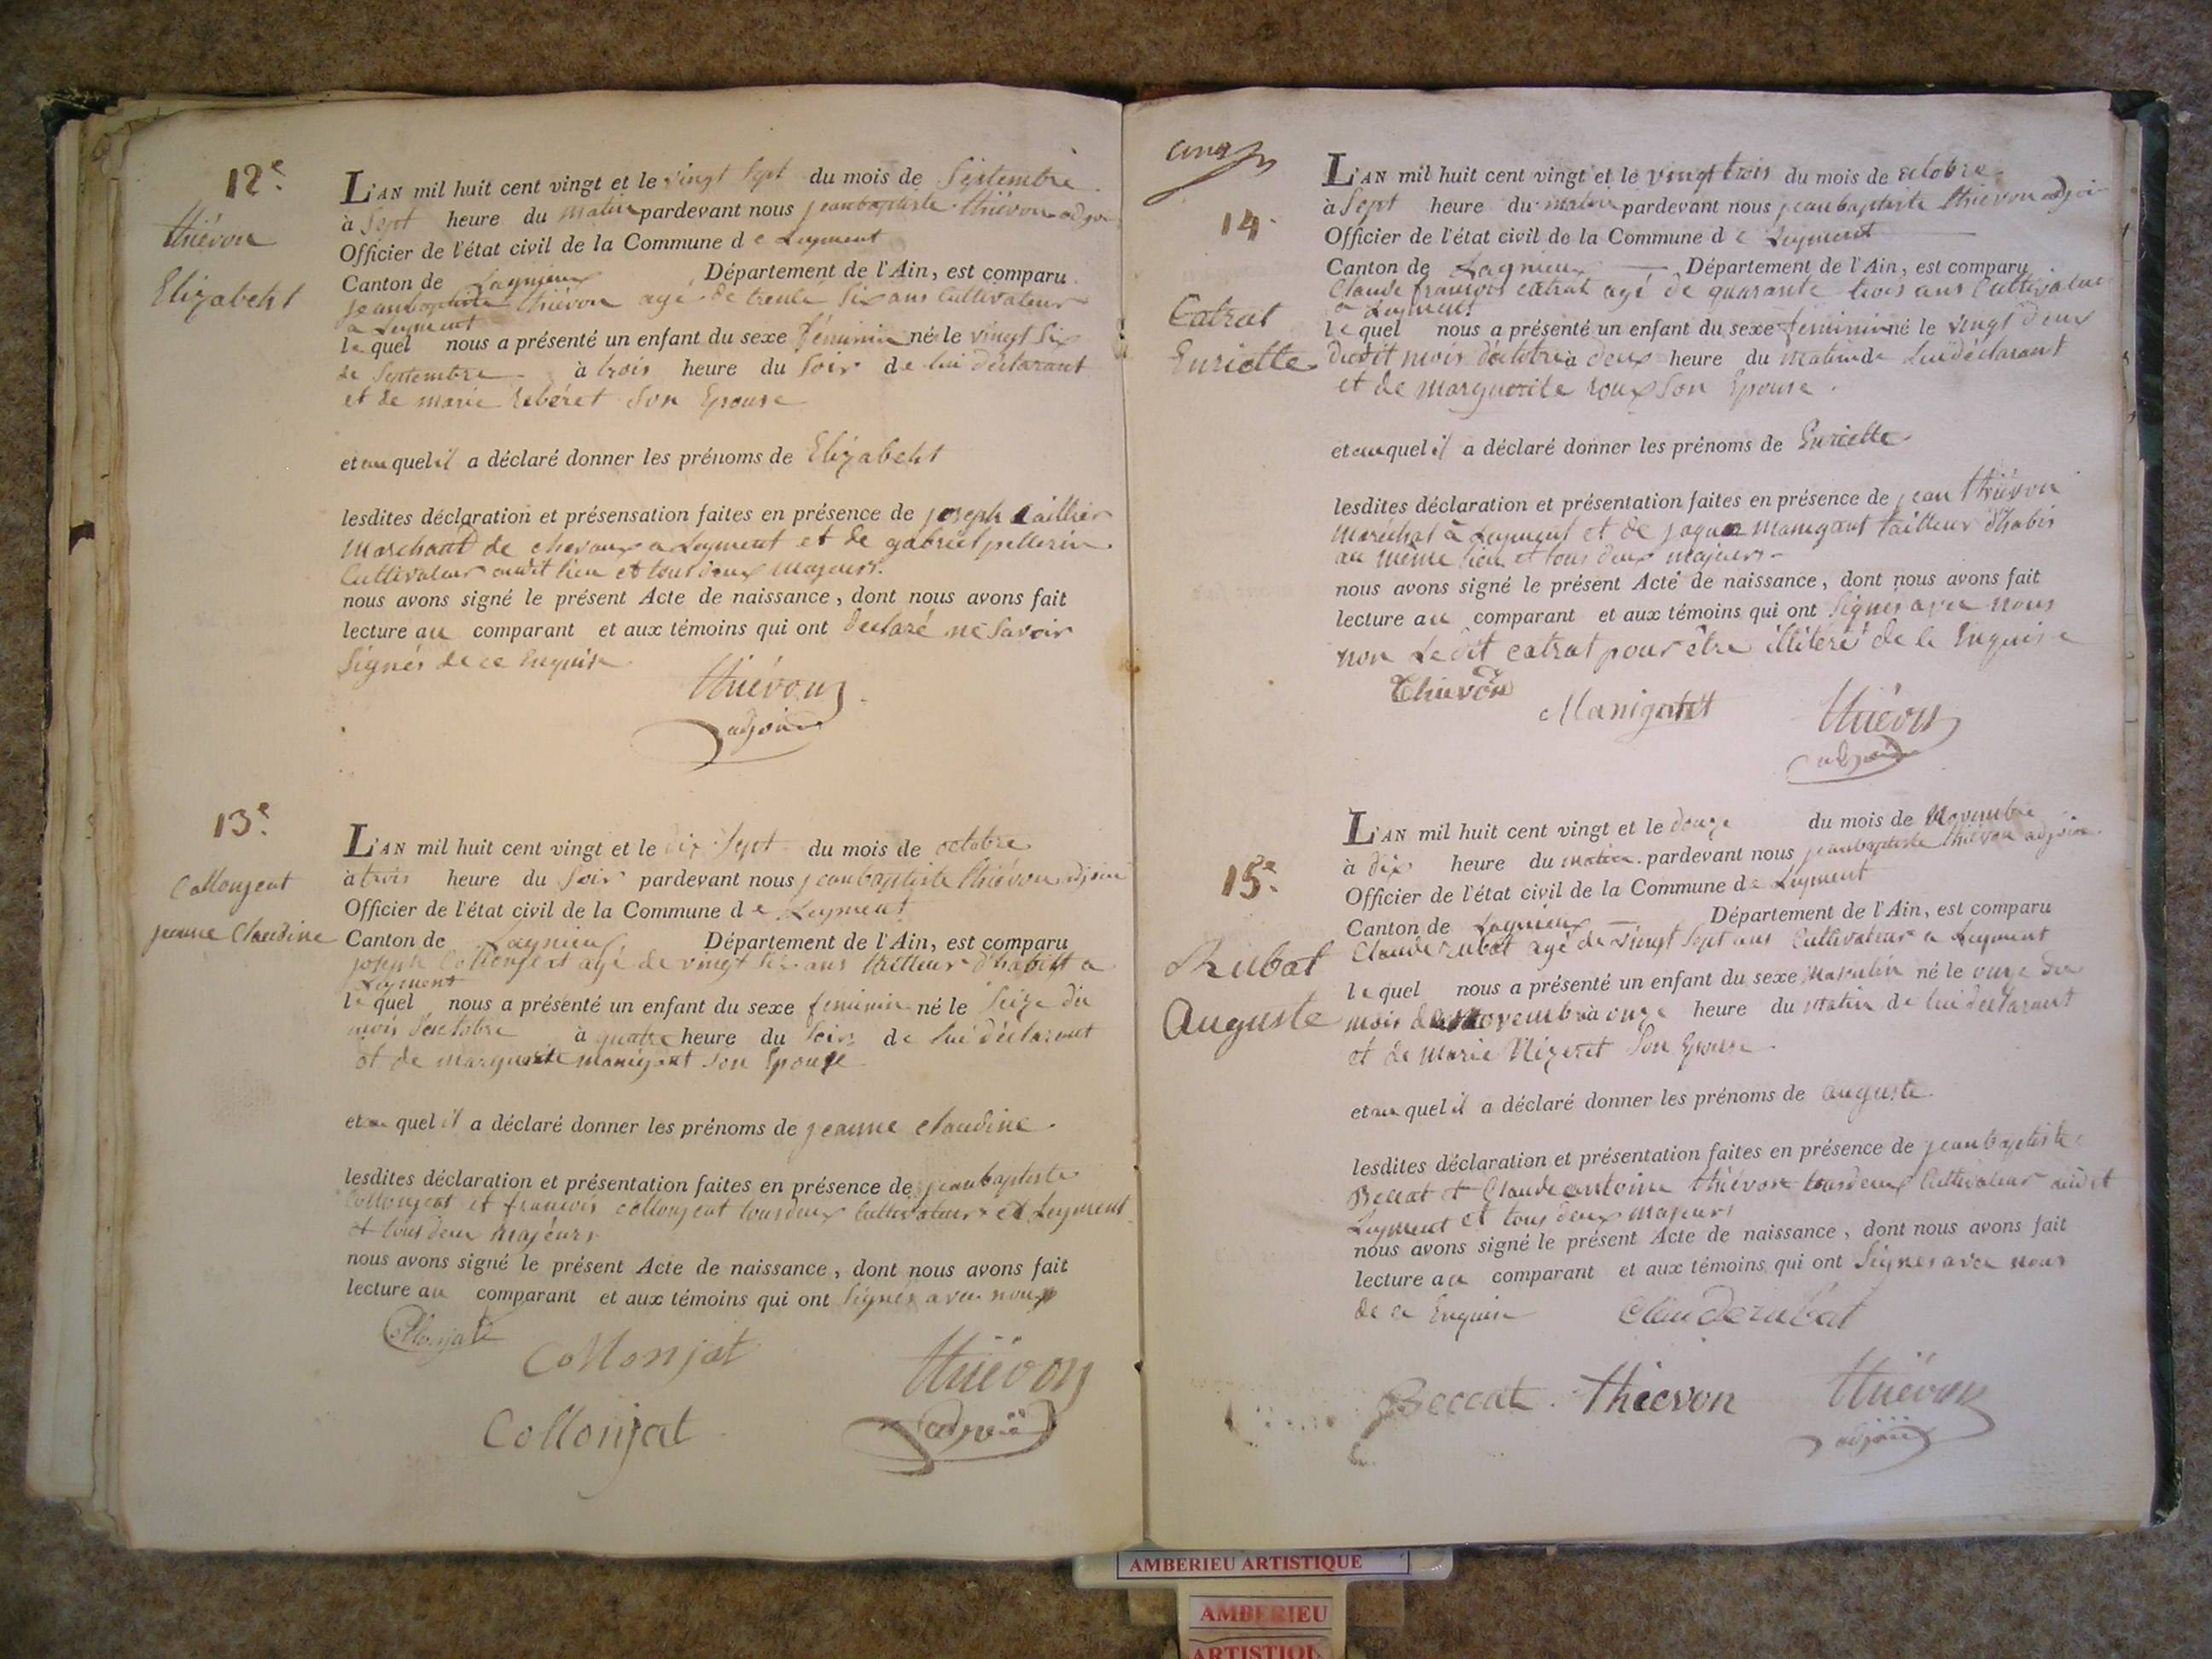 12e.
thiévon
Elizabeht
L'AN mil huit cent vingt et le vingt sept du mois de Septembre
à Sept heure du matin pardevant nous jean baptiste thiévon adjoin
Officier de l'état civil de la Commune de Leyment
Canton de Lagnieux Département de l'Ain, est comparu
jean baptiste thiévon agé de trente six ans Cultivateur
a Leyment
lequel nous a présenté un enfant du sexe féminin né le vingt six
de Septembre à trois heure du soir de lui déclarant
et de marie Reberet son Epouse
et au quel il a déclaré donner les prénoms de Elizabeht
lesdites déclaration et présensation faites en présence de joseph
Marchant de chevaux a Leyment et de gabriel pellerin
Cultivateur audit lieu et tous deux majeurs.
nous avons signé le présent Acte de naissance, dont nous avons fait
lecture au comparant et aux témoins qui ont déclaré ne savoir
Signés de ce Enquise
thiévon
adjoin
13e.
Collonjeat
jeanne Claudine
L'AN mil huit cent vingt et le dix Sept du mois de octobre
à trois heure du Soir pardevant nous jean baptiste thiévon adjoin
Officier de l'état civil de la Commune de Leyment
Canton de Lagnieux Département de l'Ain, est comparu
joseph Collonjeat agé de vingt six ans tailleur d'habit a
Leyment
lequel nous a présenté un enfant du sexe feminin né le Seize du
mois d'octobre à quatre heure du Soir de lui déclarant
et de marguerite manigant son Epouse
et au quel il a déclaré donner les prénoms de jeanne claudine.
lesdites déclaration et présentation faites en présence de jean baptiste
Collonjeat et francois collonjeat tous deux Cultivateurs a Leyment
et tous deux majeurs
nous avons signé le présent Acte de naissance, dont nous avons fait
lecture au comparant et aux témoins qui ont Signés avec nous
Collonjat
Collonjat
thiévon
Collonjat
adjoin
cinq
14.
Catrat
Enriette
L'AN mil huit cent vingt et le vingt trois du mois de octobre
à Sept heure du matin pardevant nous jean baptiste thiévon adjoi
Officier de l'état civil de la Commune de Leyment
Canton de Lagnieux Département de l'Ain, est comparu
Claude francois catrat agé de quarante trois ans Cultivateur
a Leyment
lequel nous a présenté un enfant du sexe feminin né le vingt deux
dudit mois d'octobre à deux heure du matin de lui déclarant
et de marguerite roux son Epouse.
et au quel il a déclaré donner les prénoms de Enriette
lesdites déclaration et présentation faites en présence de jean thiévon
Maréchal à Leyment et de jaque manigant tailleur d'habis
au même lieu et tous deux majeurs
nous avons signé le présent Acte de naissance, dont nous avons fait
lecture au comparant et aux témoins qui ont Signés avec nous
non Ledit catrat pour être illitéré de le Enquise
Thiévon
Manigant
thiévon
adjoin
15e.
Rubat
Auguste
L'AN mil huit cent vingt et le douze du mois de Novembre
à dix heure du matin pardevant nous jean baptiste thiévon adjoin
Officier de l'état civil de la Commune de Leyment
Canton de Lagnieux Département de l'Ain, est comparu
Claude rubat agé de vingt sept ans Cultivateur a Leyment
lequel nous a présenté un enfant du sexe masculin né le onze du
mois de Novembre à onze heure du matin de lui déclarant
et de marie Nizeret son Epouse.
et au quel il a déclaré donner les prénoms de auguste.
lesdites déclaration et présentation faites en présence de jean baptiste
Beccat et Claude antoine thiévon tous deux Cultivateur audit
Leyment et tous deux majeurs
nous avons signé le présent Acte de naissance, dont nous avons fait
lecture au comparant et aux témoins qui ont Signés avec nous
de ce Enquise Clauderubat
Beccat. thievon thiévon
adjoin
AMBERIEU ARTISTIQUE
AMBERIEU
ARTISTIQU